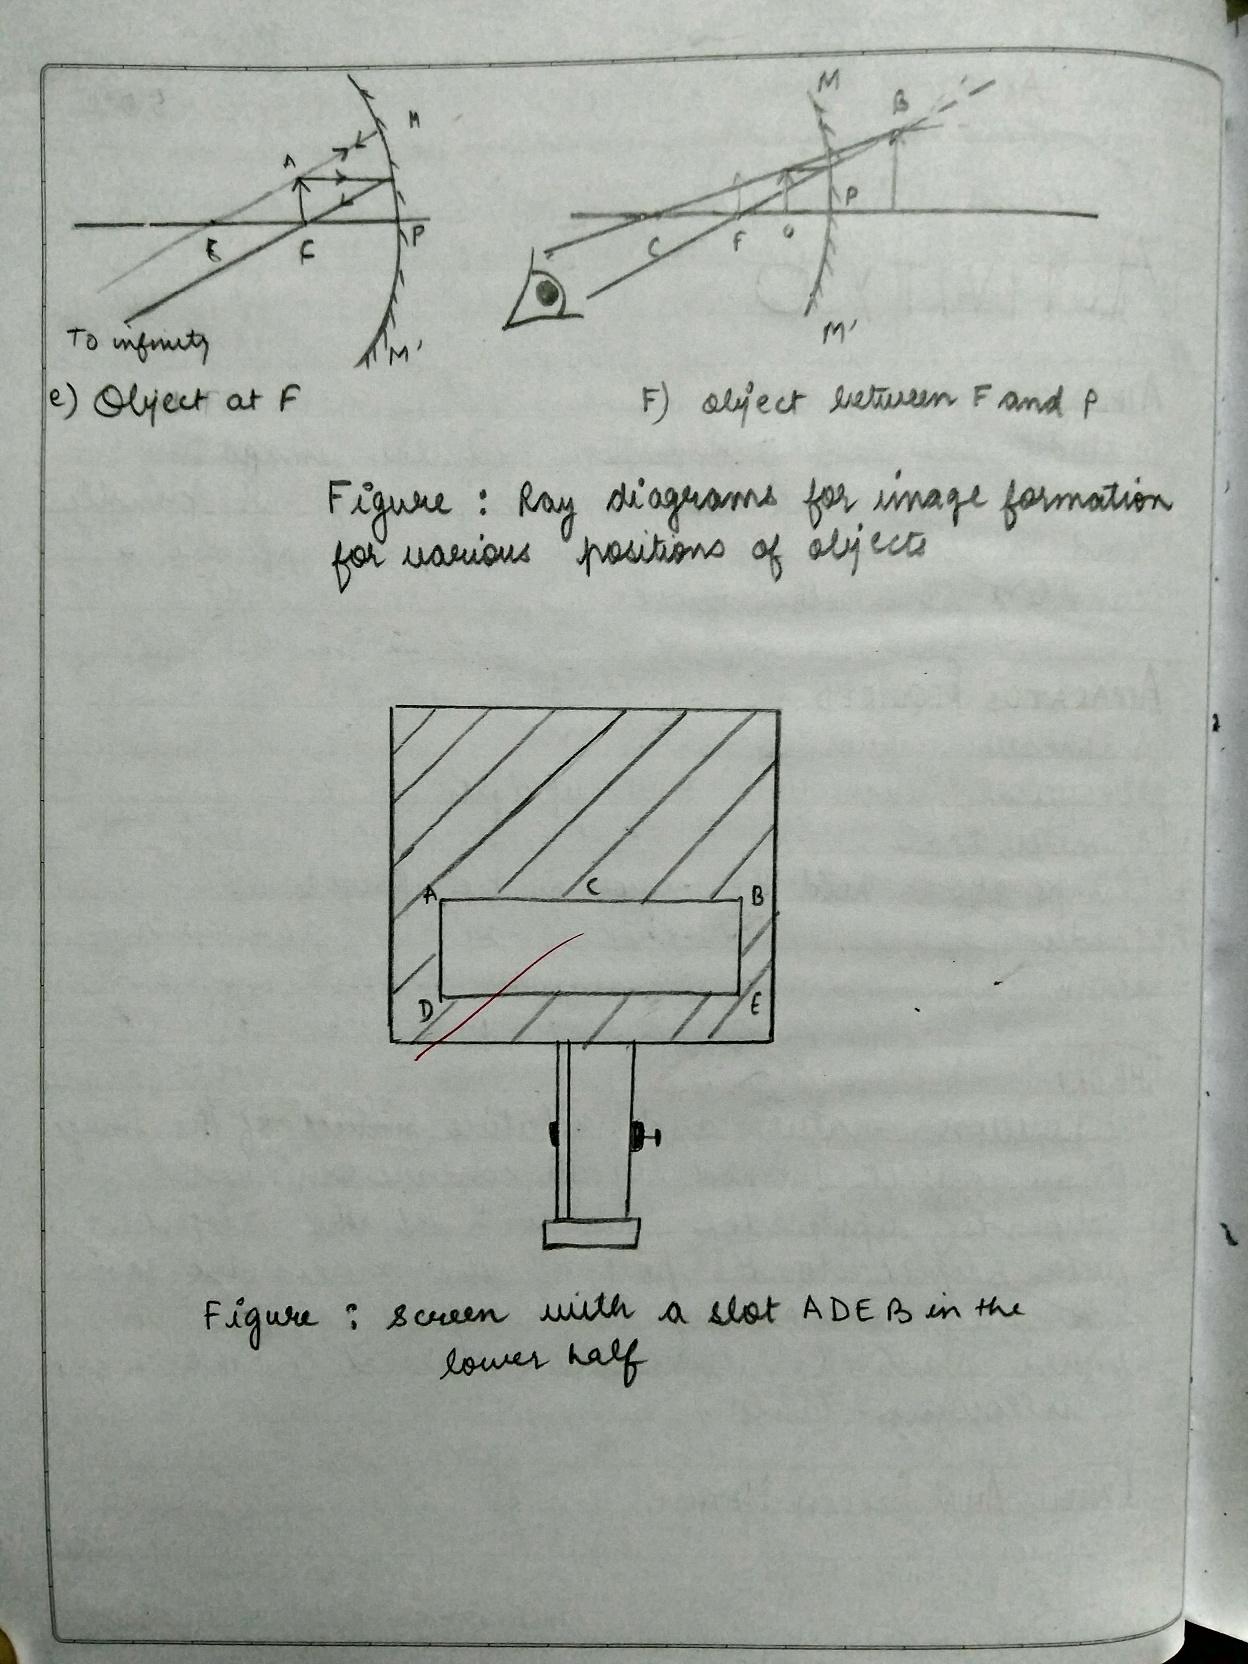 M
A
C
F
P
To infinity
M'
e) Object at F
M
B
P
C
F
O
M'
F) object between F and P
Figure : Ray diagrams for image formation
for various positions of objects
A
C
B
D
E
Figure : screen with a slot ADEB in the
lower half